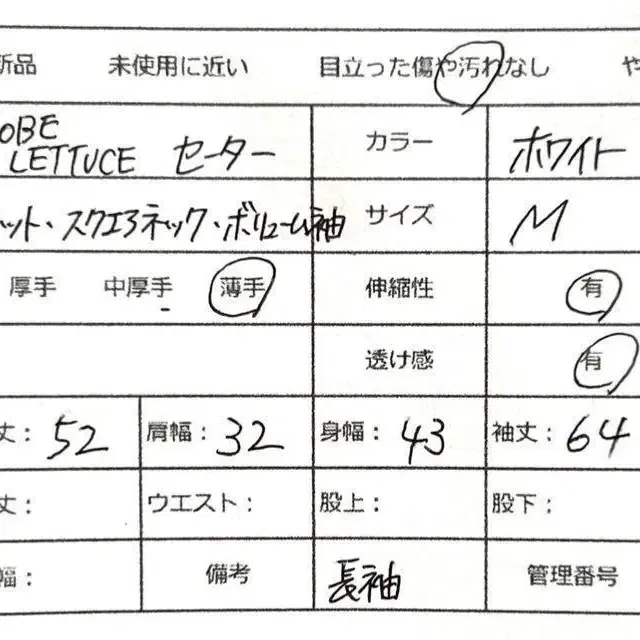 新品 未使用に近い 目立った傷や汚れなし や
OBE
LETTUCE セーター カラー ホワイト
ット・スクエアネック・ボリューム袖 サイズ M
厚手 中厚手 薄手 伸縮性 有
透け感 有
丈: 52 肩幅: 32 身幅: 43 袖丈: 64
丈: ウエスト: 股上: 股下:
幅: 備考 長袖 管理番号